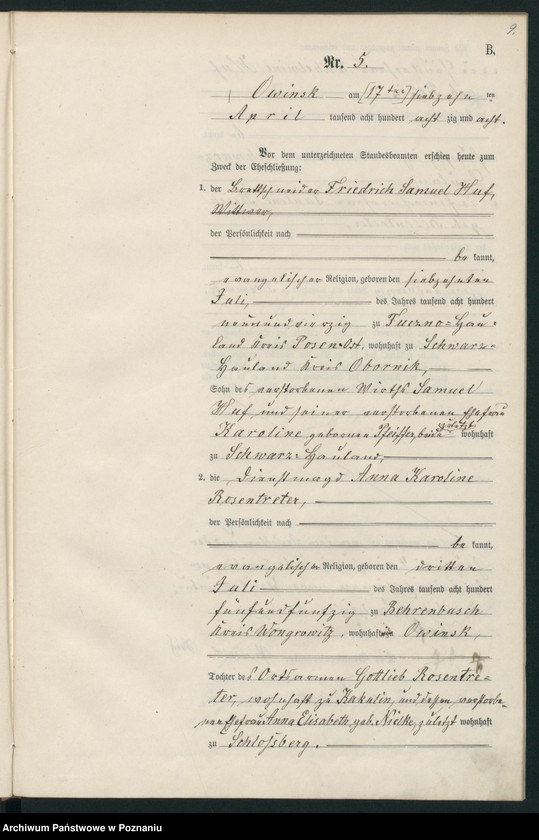 9.
B.
Nr. 5.
Owinsk am (17ten) siebzehn ten
April tausend acht hundert acht zig und acht.
Vor dem unterzeichneten Standesbeamten erschien heute zum
Zweck der Eheschließung:
1. der Brettschneider Friedrich Samuel Huf,
Wittwer,
der Persönlichkeit nach
be kannt,
evangelischer Religion, geboren den siebzehnten
Juli, des Jahres tausend acht hundert
neunundvierzig zu Tuczno-Hau-
land Kreis Posen-Ost, wohnhaft zu Schwarz-
Hauland Kreis Obornik,
Sohn des verstorbenen Wirths Samuel
Huf und seiner verstorbenen Ehefrau
Karoline geborenen Pfeiffer, beide zuletzt wohnhaft
zu Schwarz-Hauland,
2. die Dienstmagd Anna Karoline
Rosentreter,
der Persönlichkeit nach
be kannt,
evangelischer Religion, geboren den dritten
Juli des Jahres tausend acht hundert
fünfundfünfzig zu Behrenbusch
Kreis Wongrowitz, wohnhaft zu Owinsk,
Tochter des Ortsarmen Gottlieb Rosentre-
ter, wohnhaft zu Kakulin, und dessen verstorbe-
nen Ehefrau Anna Elisabeth, geb. Nielke, zuletzt wohnhaft
zu Schlossberg.
Archiwum Państwowe w Poznaniu